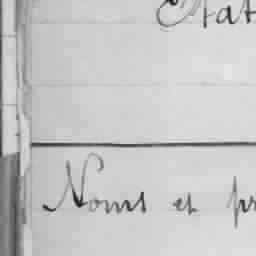 Etat
Noms et pr